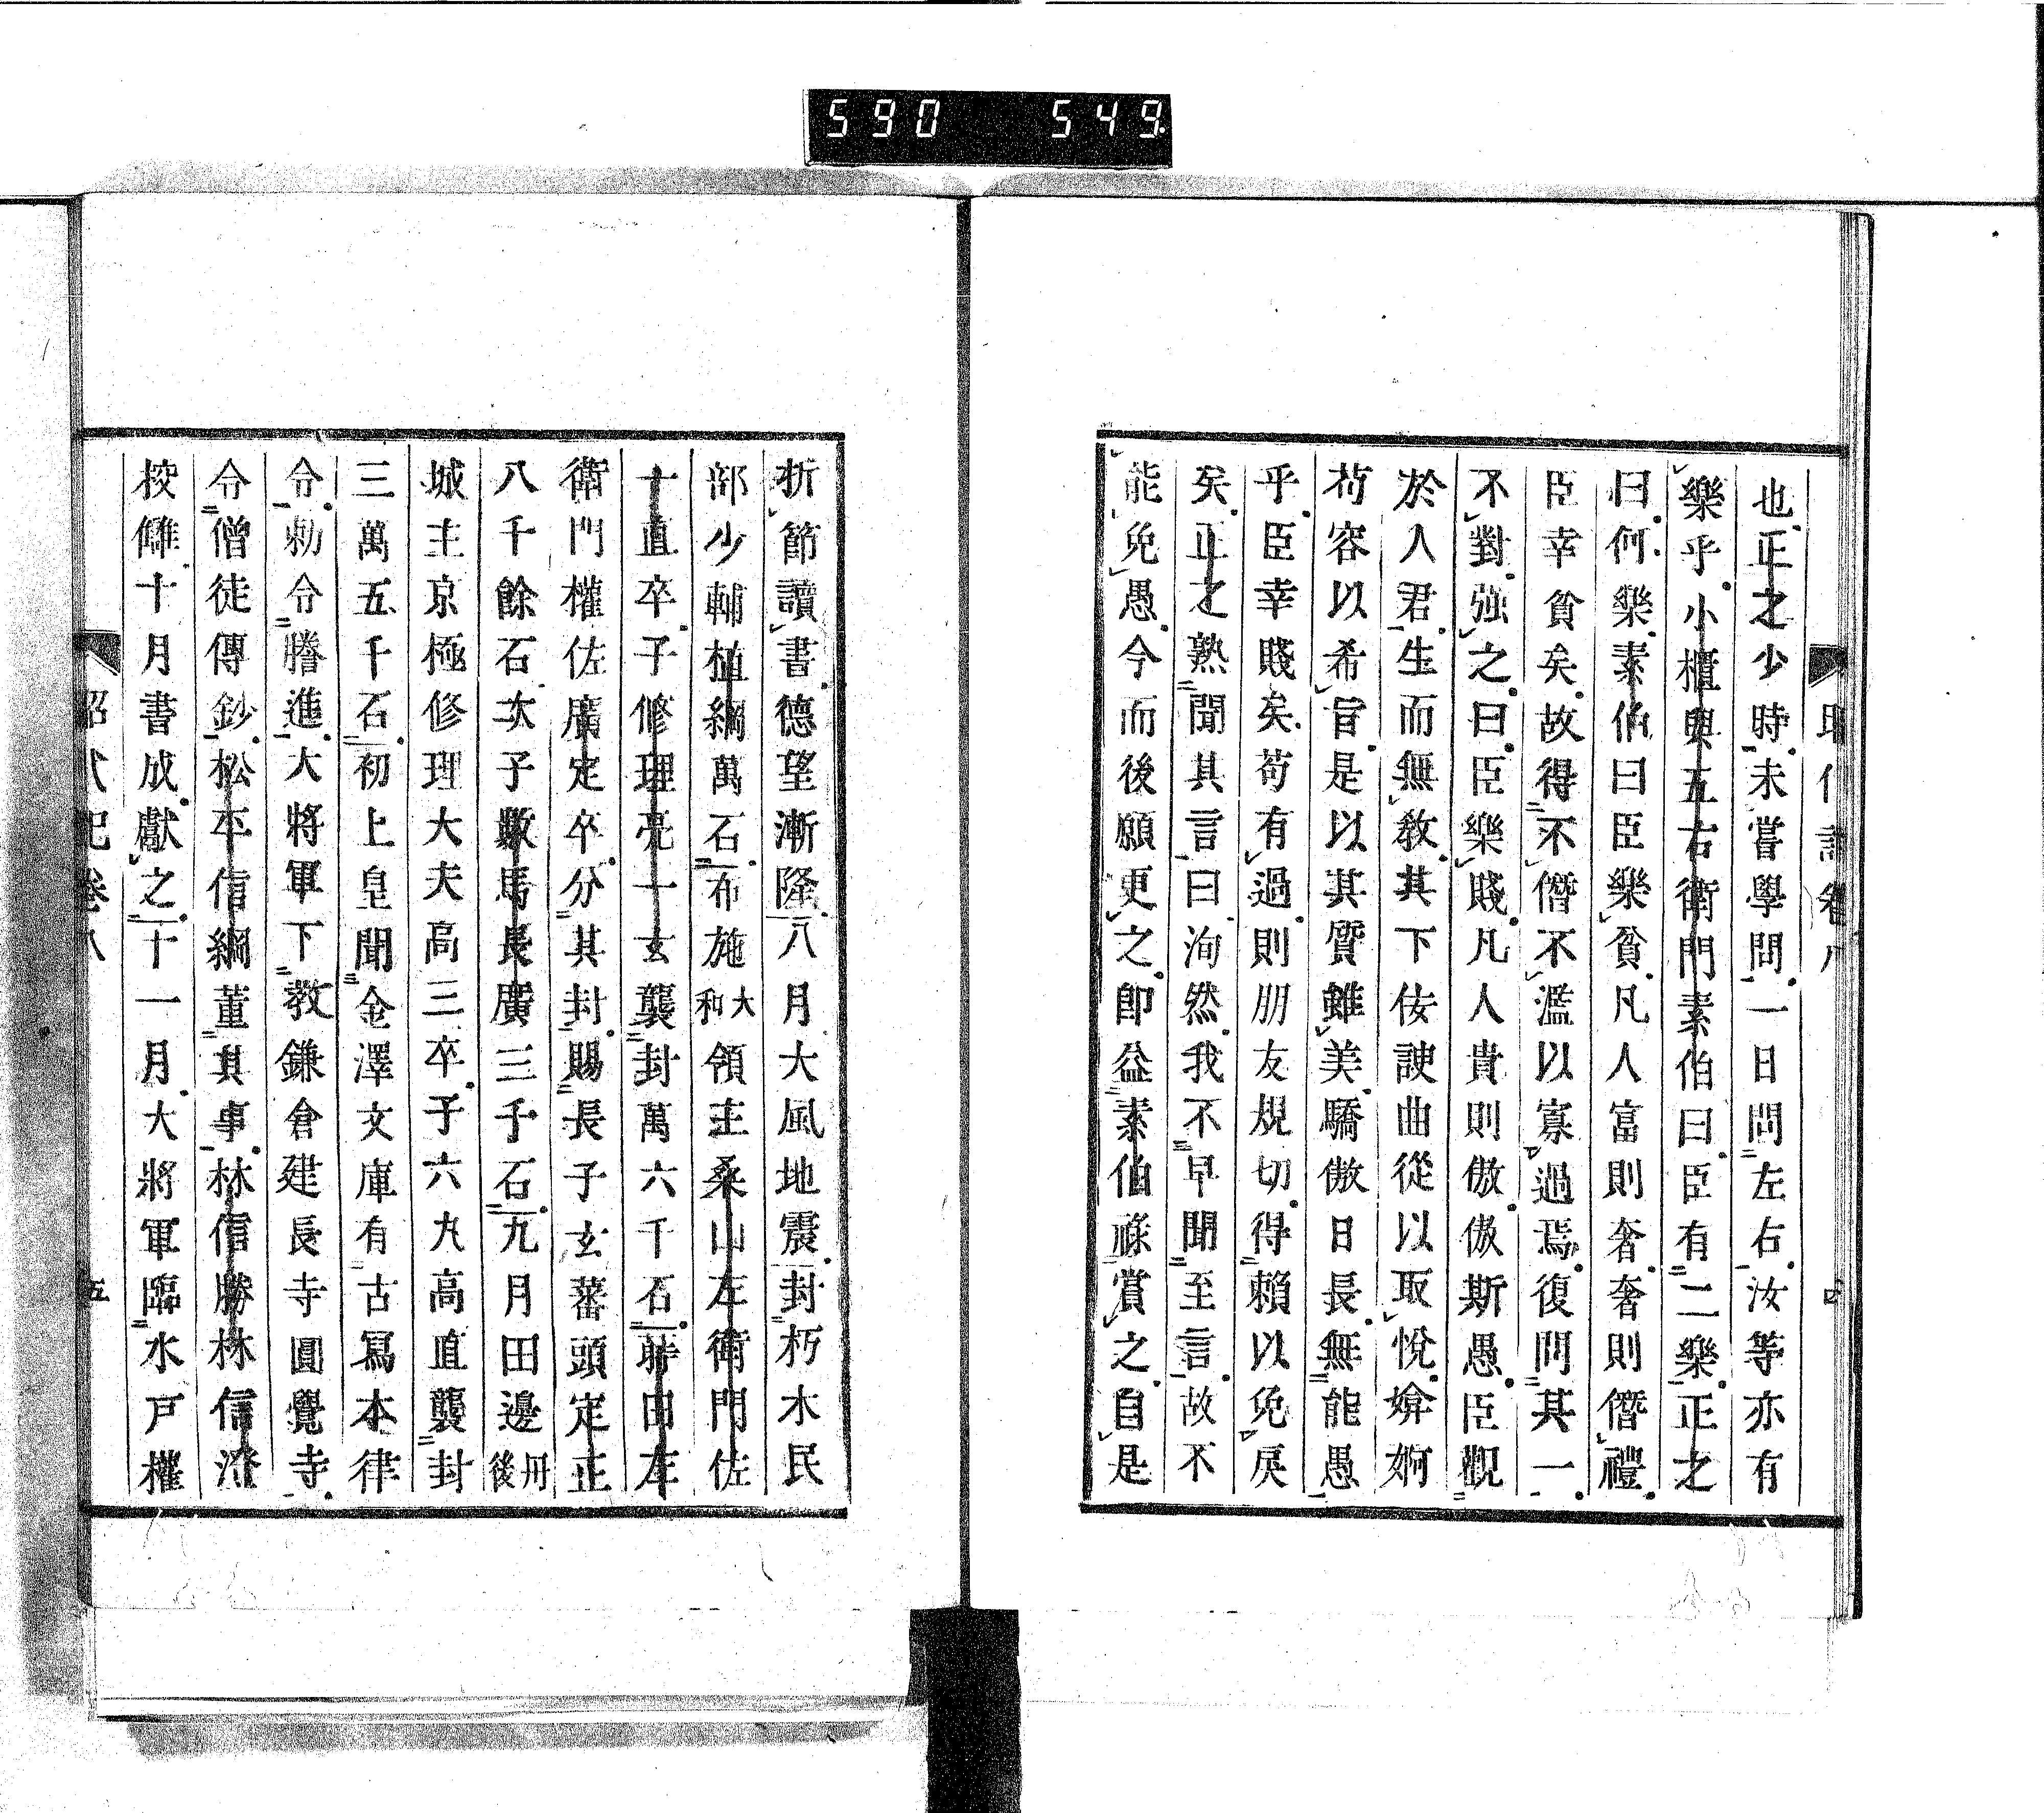 590 549
也正之少時未嘗學問一日問左右汝等亦有
樂乎小櫃與五右衛門素伯曰臣有二樂正之
曰何樂素伯曰臣樂貧凡人富則奢奢則僭禮
臣幸貧矣故得不僭不濫以寡過焉復問其一
不對強之曰臣樂賤凡人貴則傲傲斯愚臣觀
於人君生而無教其下佞諛曲從以取悅媕婀
苟容以希旨是以其質雖美驕傲日長無能愚
乎臣幸賤矣苟有過則朋友規切得賴以免戾
矣正之熟聞其言曰洵然我不早聞至言故不
能免愚今而後願更之卽益素伯祿賞之自是
折節讀書德望漸隆八月大風地震封朽木民
部少輔植綱萬石布施大和領主桑山左衛門佐
十直卒子修理亮一玄襲封萬六千石蒔田左
衛門權佐廣定卒分其封賜長子玄蕃頭定正
八千餘石次子數馬長廣三千石九月田邊丹後
城主京極修理大夫高三卒子六丸高直襲封
三萬五千石初上皇聞金澤文庫有古寫本律
令勅令謄進大將軍下教鎌倉建長寺圓覺寺
令僧徒傳鈔松平信綱董其事林信勝林信澄
挍讎十月書成獻之十一月大將軍臨水戶權
卷八
五